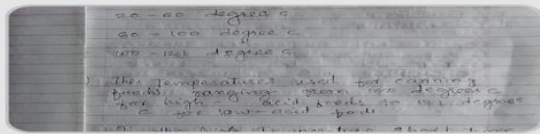 20 - 60 degree c
60 - 100 degree c
100 - 121 degree c
The temperatures used for canning
foods ranging from 100 degrees c
for high - acid foods to 121 degree
c for low-acid foods